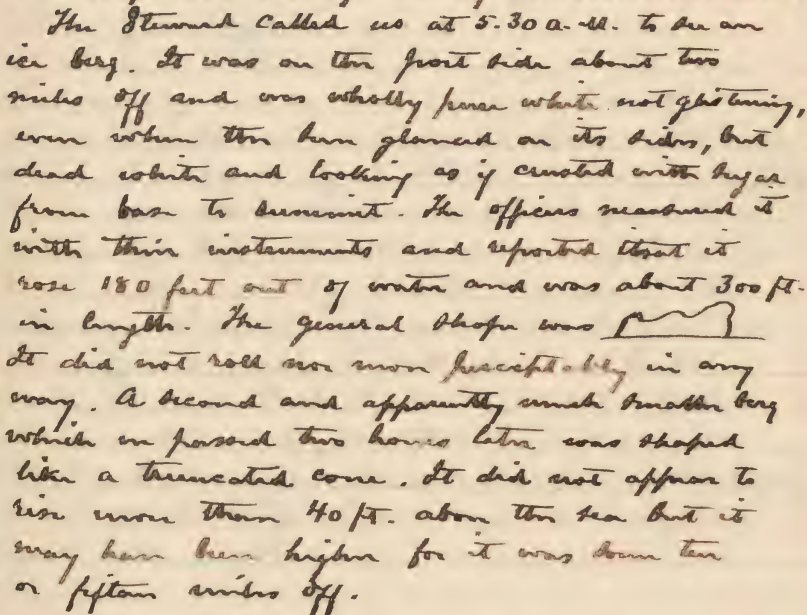 The Steward called us at 5.30 a.m. to see an
ice berg. It was on the port side about two
miles off and was wholly pure white not glistening,
even when the sun glanced on its sides, but
dead white and looking as if crusted with sugar
from base to summit. The officers measured it
with their instruments and reported that it
rose 180 feet out of water and was about 300 ft.
in length. The general shape was
It did not roll nor move perceptably in any
way. A second and apparently much smaller berg
which we passed two hours later was shaped
like a truncated cone. It did not appear to
rise more than 40 ft. above the sea but it
may have been higher for it was some ten
or fifteen miles off.